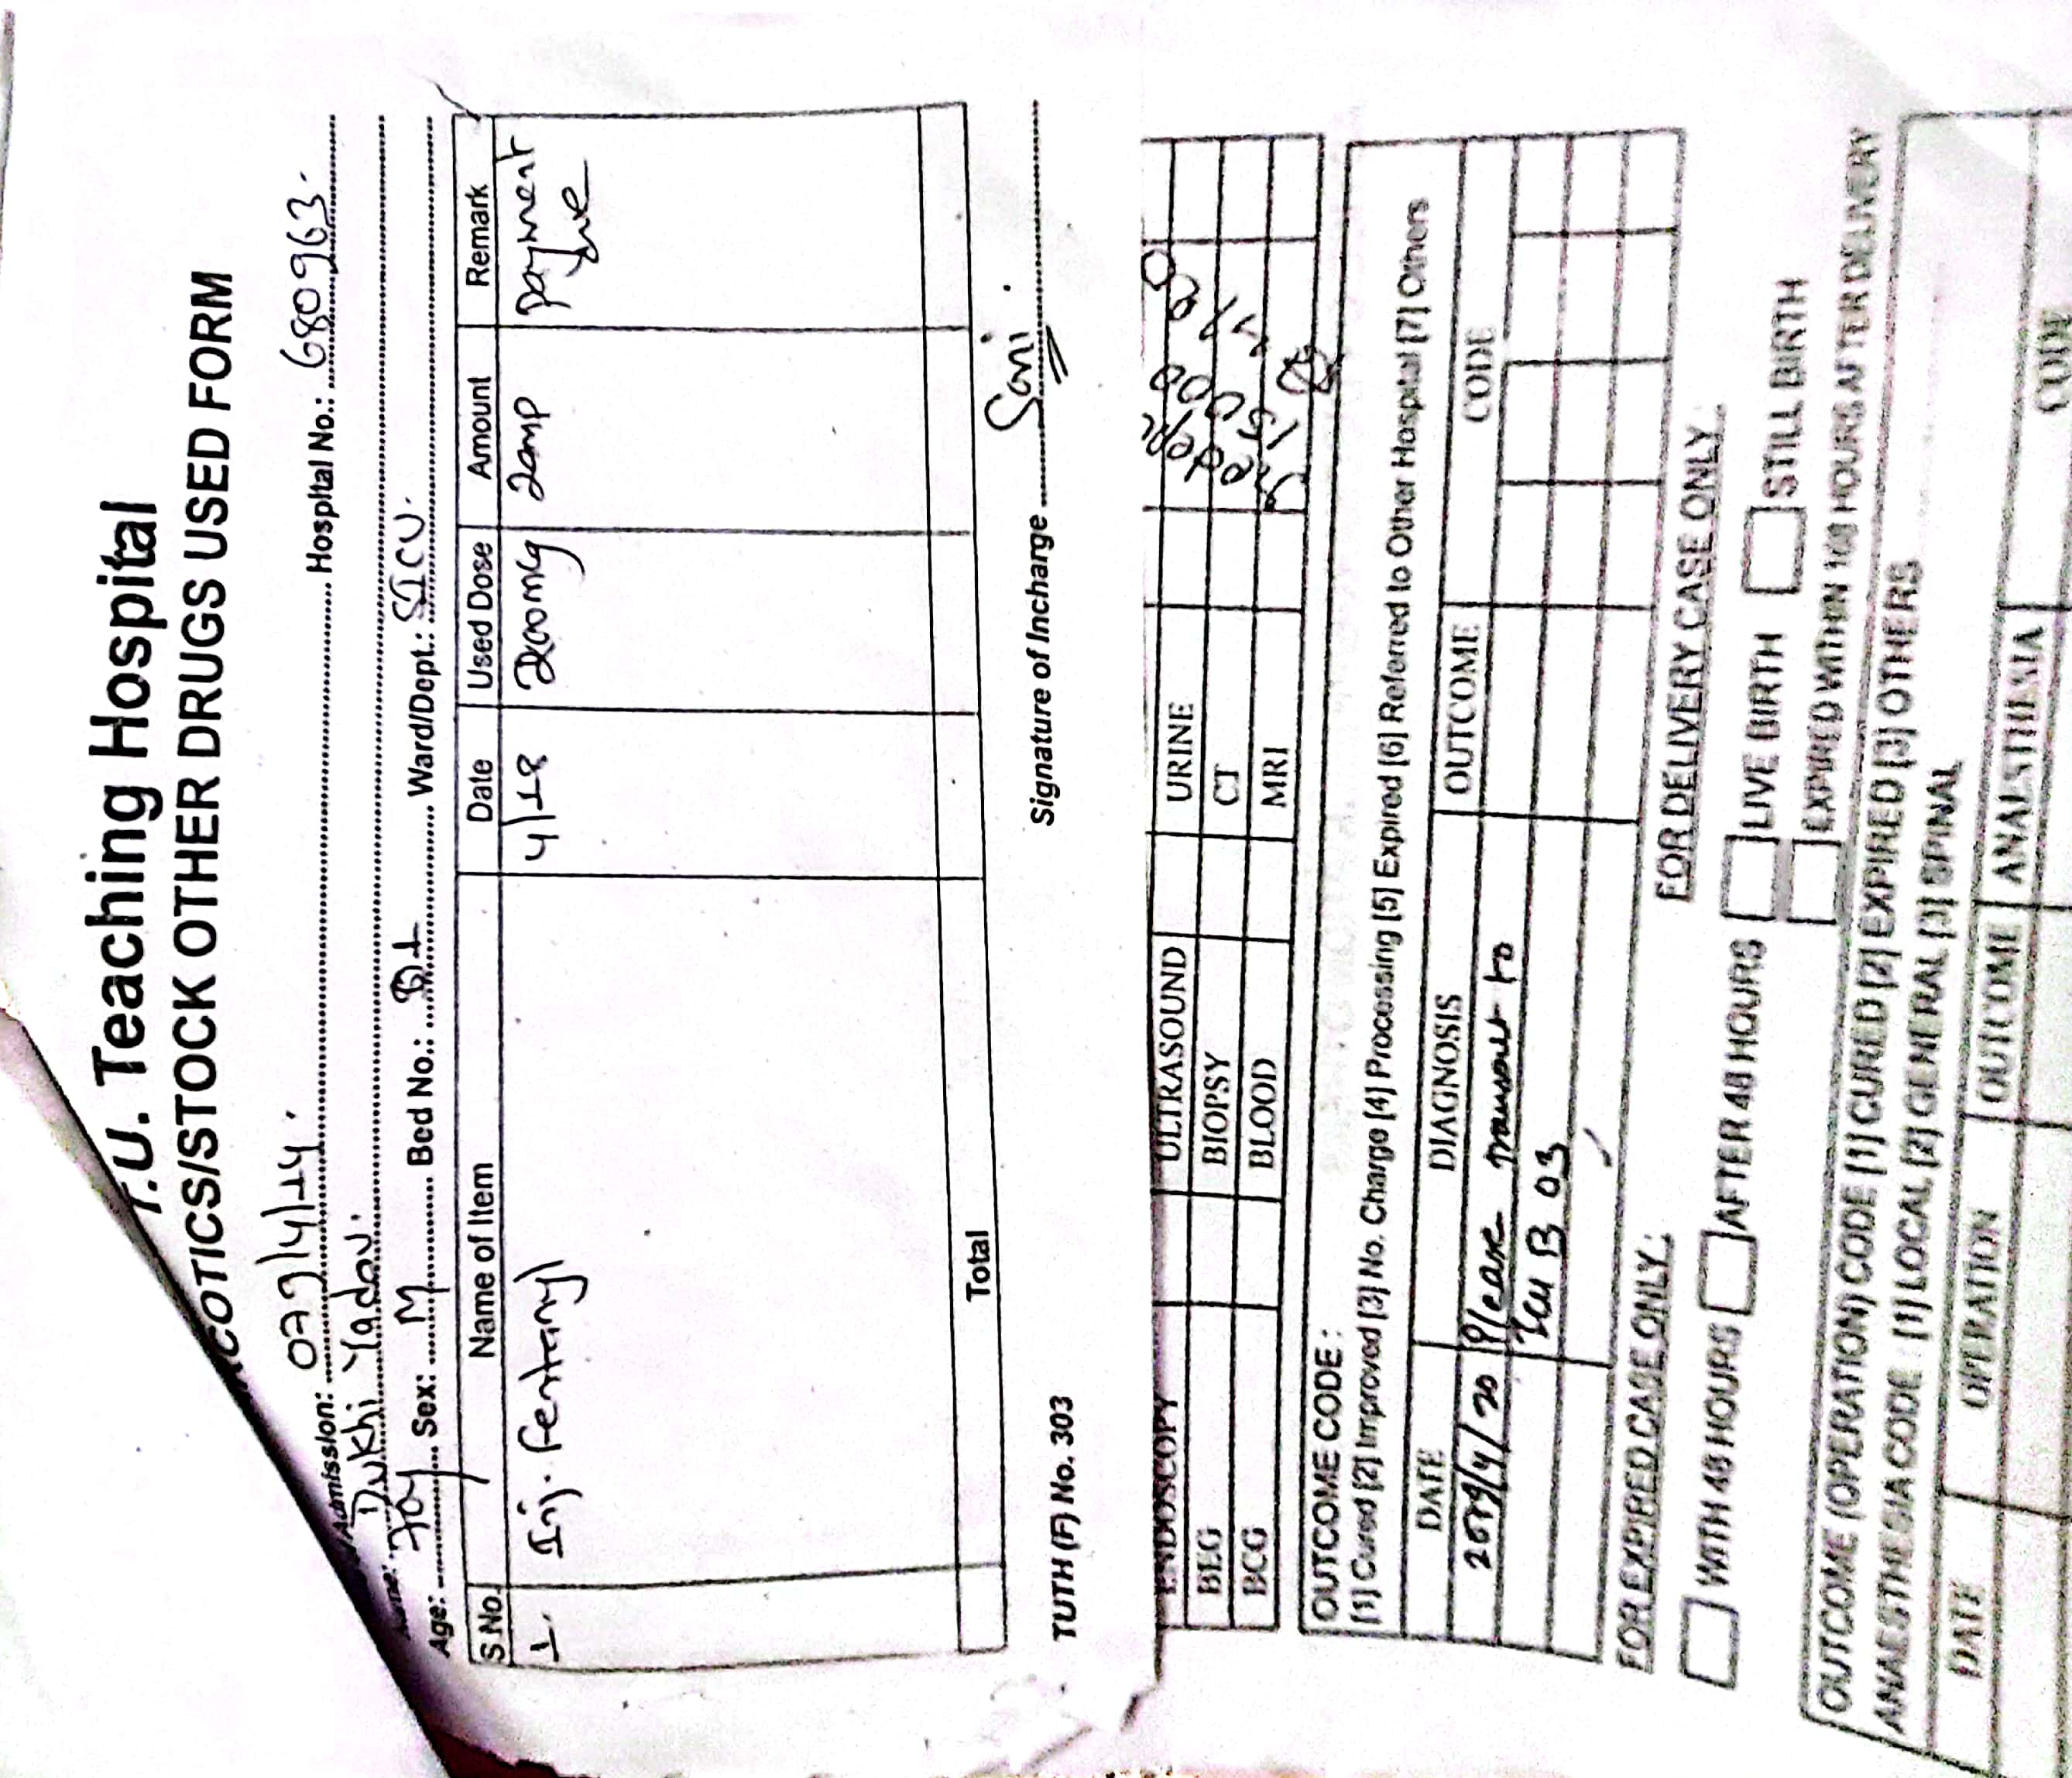 T.U. Teaching Hospital
COTICS/STOCK OTHER DRUGS USED FORM
Admission: 079/4/14. Hospital No.: 680963.
Name: Dukhi Yadav.
Age: 70y Sex: M Bed No.: B1 Ward/Dept.: SICU.
S.No. Name of Item Date Used Dose Amount Remark
1. Inj. Fentanyl 4/18 200mcg 2amp payment due
Total
Signature of Incharge
TUTH (F) No. 303
ENDOSCOPY ULTRASOUND URINE
EEG BIOPSY CT
ECG BLOOD MRI
OUTCOME CODE :
[1] Cured [2] Improved [3] No. Charge [4] Processing [5] Expired [6] Referred to Other Hospital [7] Others
DATE DIAGNOSIS OUTCOME CODE
2079/4/20 Please transfer to
ICU B 03
FOR EXPIRED CASE ONLY : FOR DELIVERY CASE ONLY :
WITH 48 HOURS AFTER 48 HOURS LIVE BIRTH STILL BIRTH
EXPIRED WITHIN 168 HOURS AFTER DELIVERY
OUTCOME (OPERATION) CODE [1] CURED [2] EXPIRED [3] OTHERS
ANAESTHESIA CODE [1] LOCAL [2] GENERAL [3] SPINAL
DATE OPERATION OUTCOME ANAESTHESIA CODE